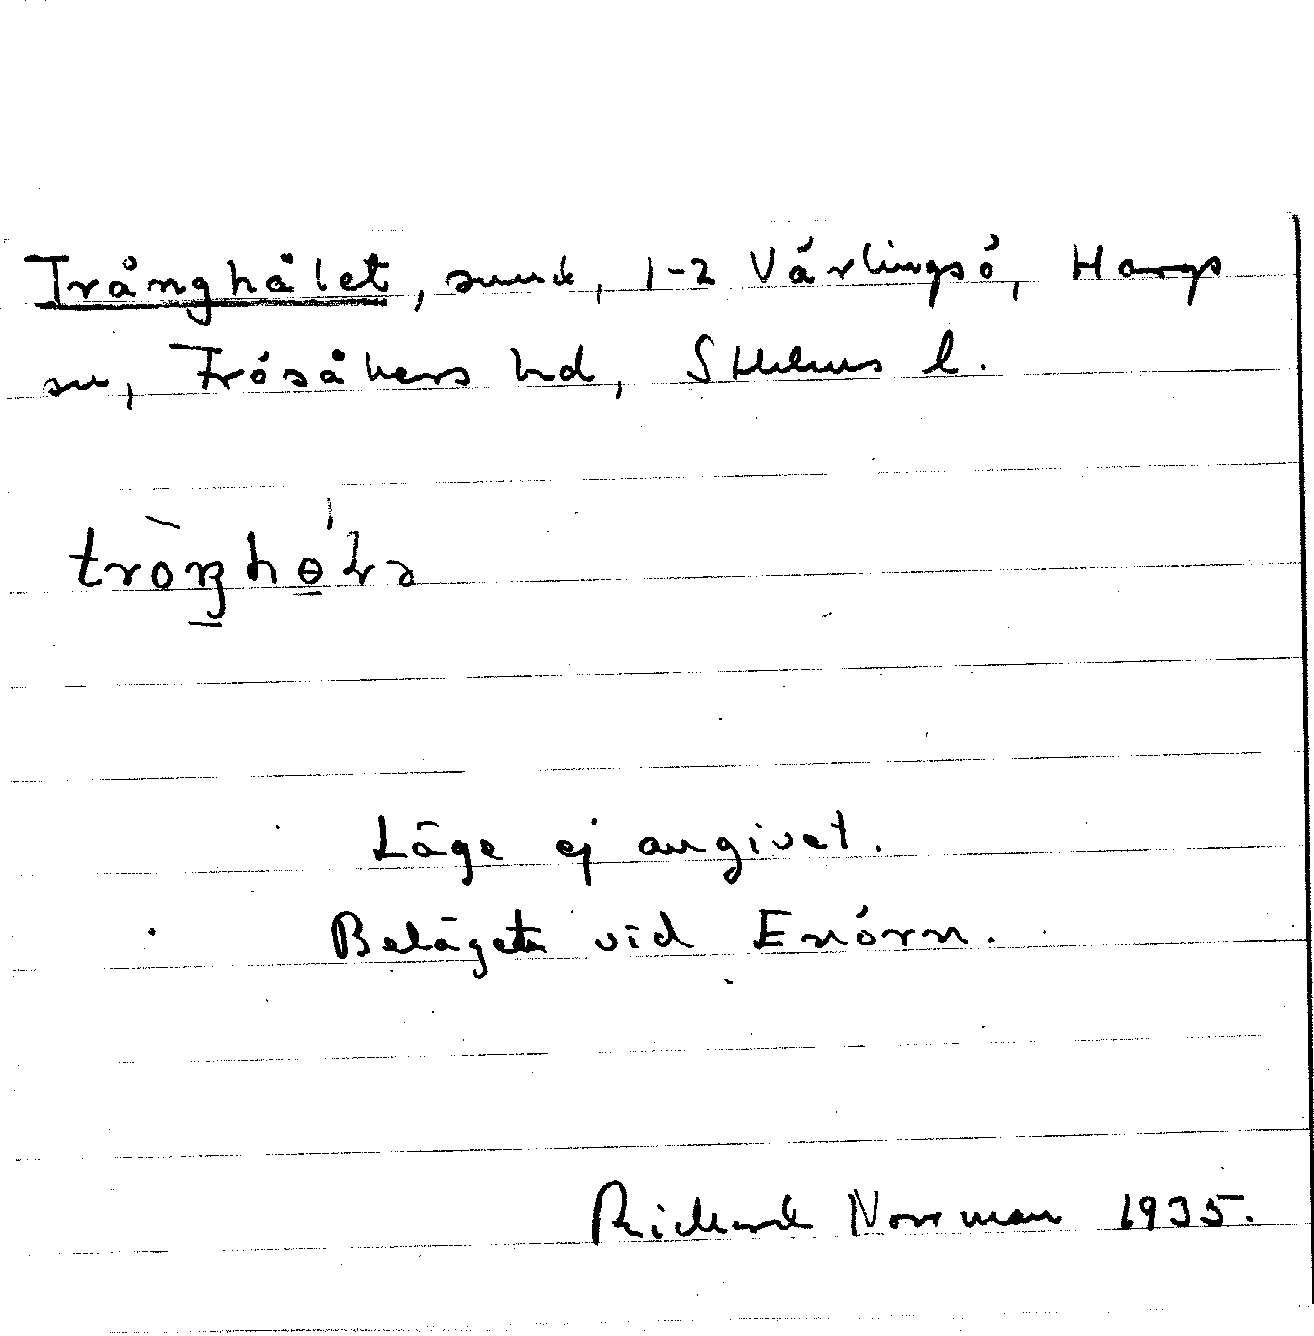 Trånghålet, sund, 1-2 Värlingsö, Hargs
sn, Frösåkers hd, Sthlms l.
Läge ej angivet.
Beläget vid Enörn.
Rickard Norrman 1935.